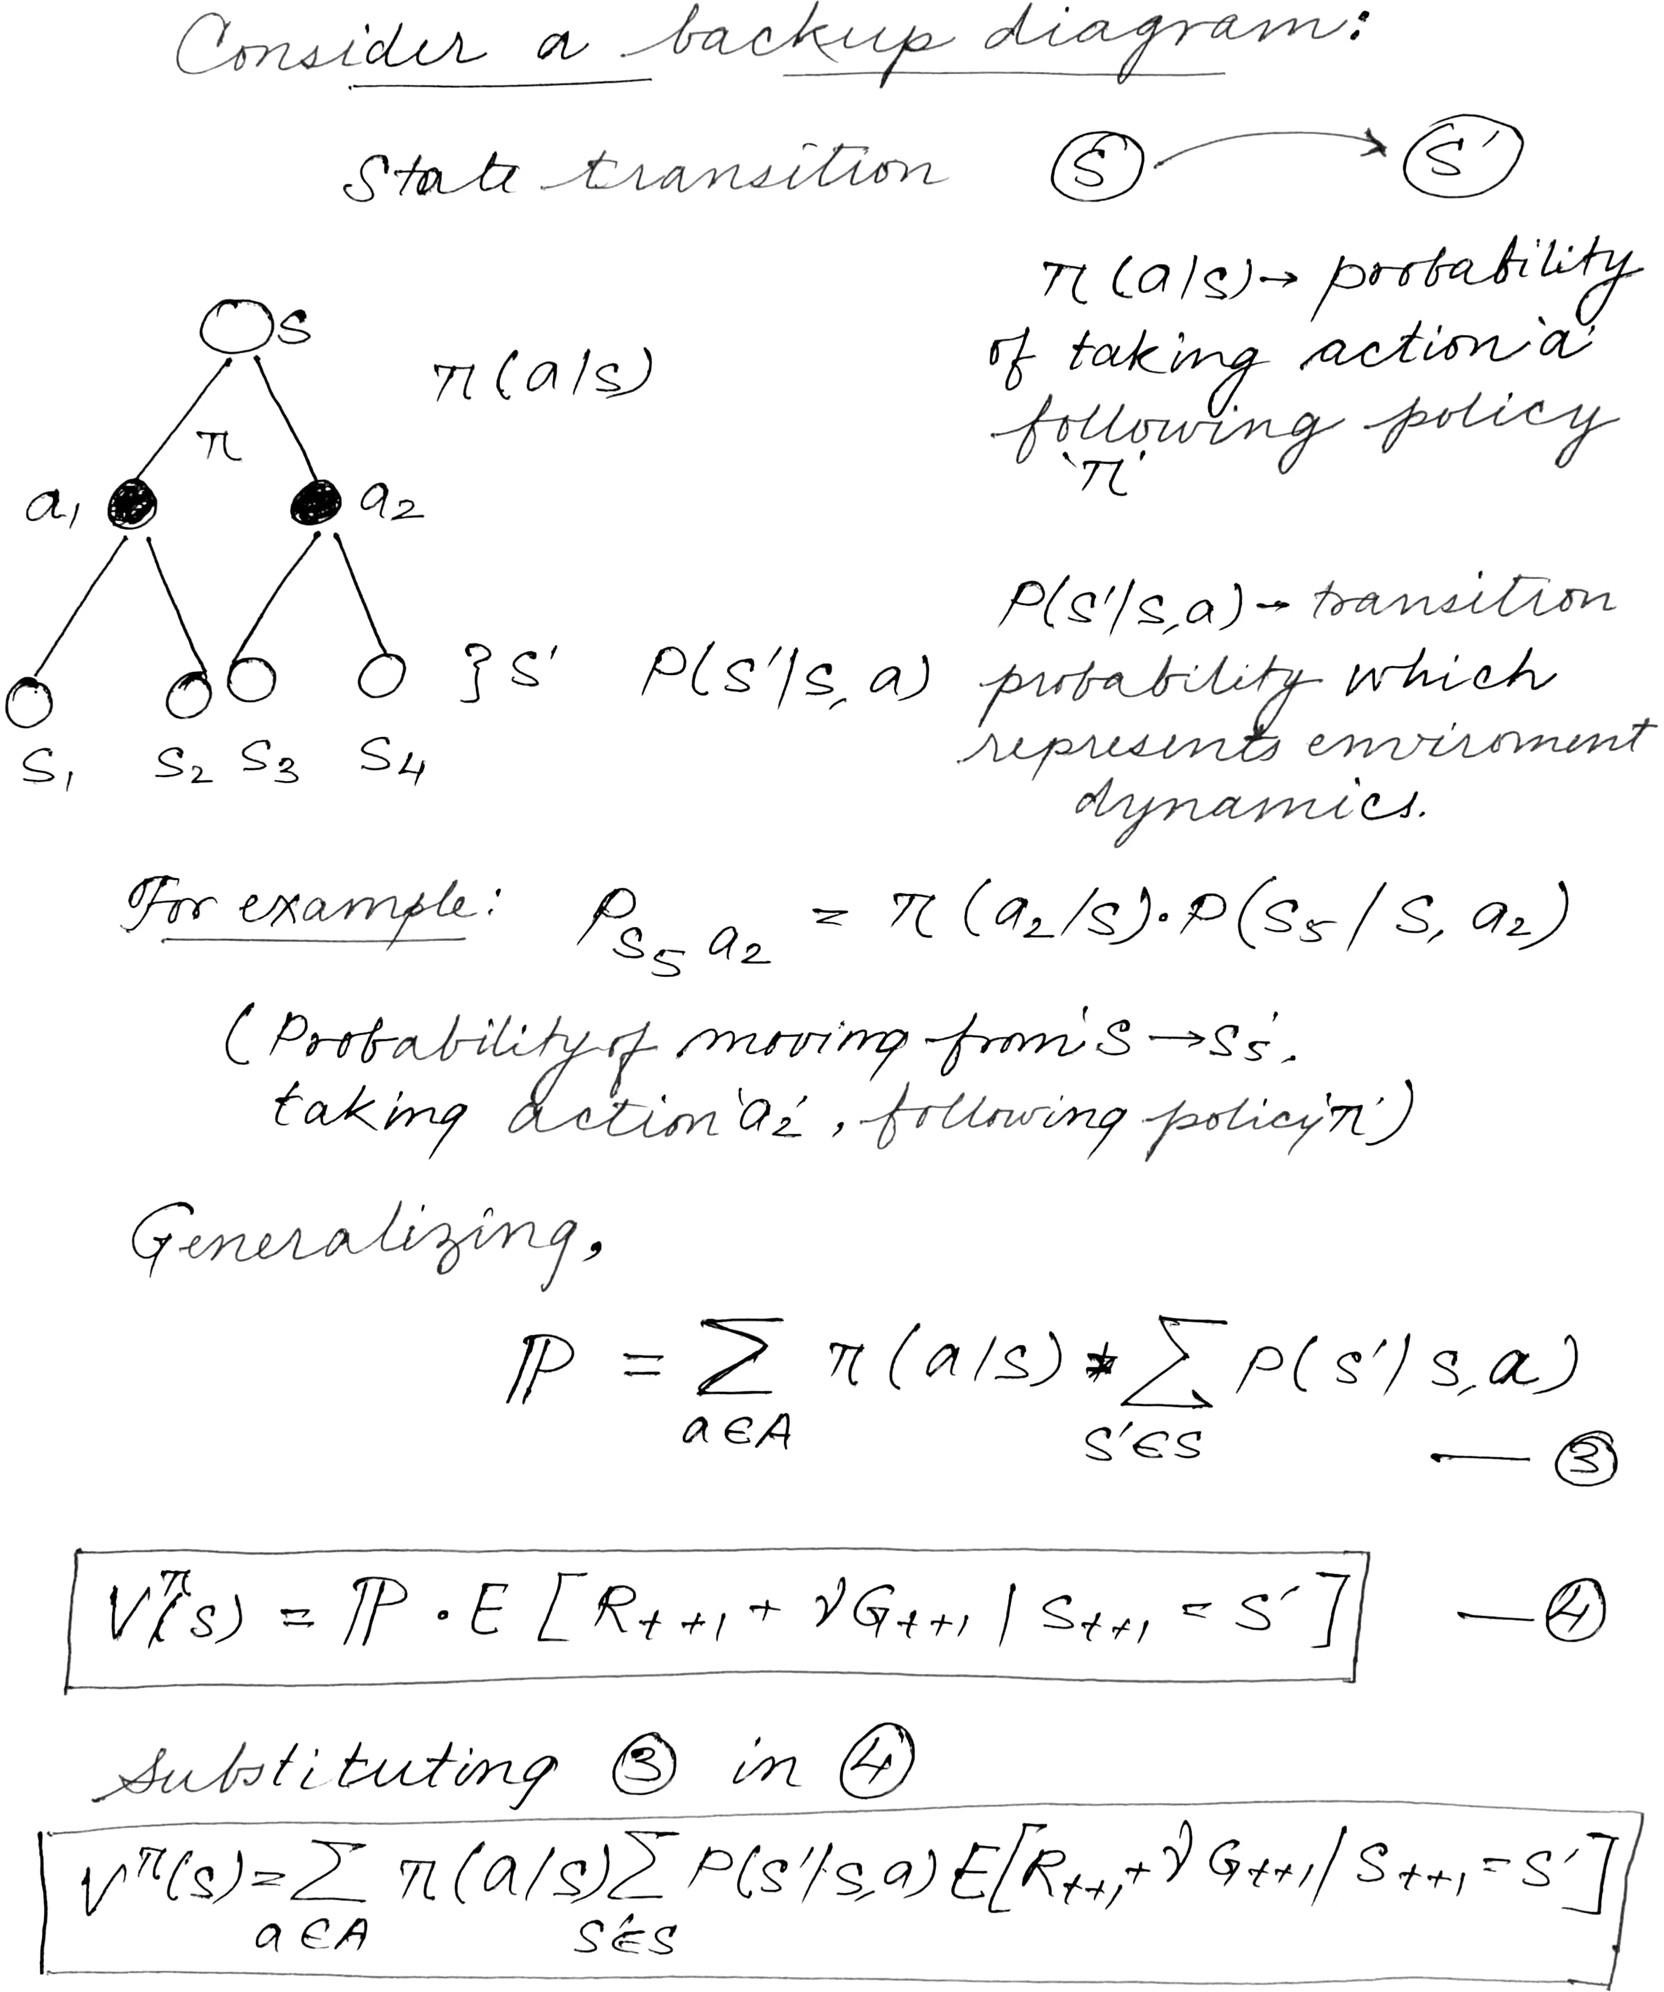 Consider a backup diagram:
State transition S → S'
S
π(a/s)
π(a/s)→ probability
of taking action 'a'
following policy
'π'
π
a1 a2
P(s'/s,a) → transition
} S' P(s'/s,a) probability which
S1 S2 S3 S4 represents enviroment
dynamics.
For example: P S5 a2 = π(a2/s)·P(S5/S, a2)
(Probability of moving from 'S → S5'.
taking action 'a2', following policy 'π')
Generalizing,
ℙ = ∑ π(a/s) * ∑ P(s'/s,a)
a∈A S'∈S — ③
Vπ(s) = ℙ · E [Rt+1 + γGt+1 / St+1 = S'] — ④
substituting ③ in ④
Vπ(s) = ∑ π(a/s) ∑ P(s'/s,a) E[Rt+1 + γGt+1 / St+1 = S']
a∈A S'∈S